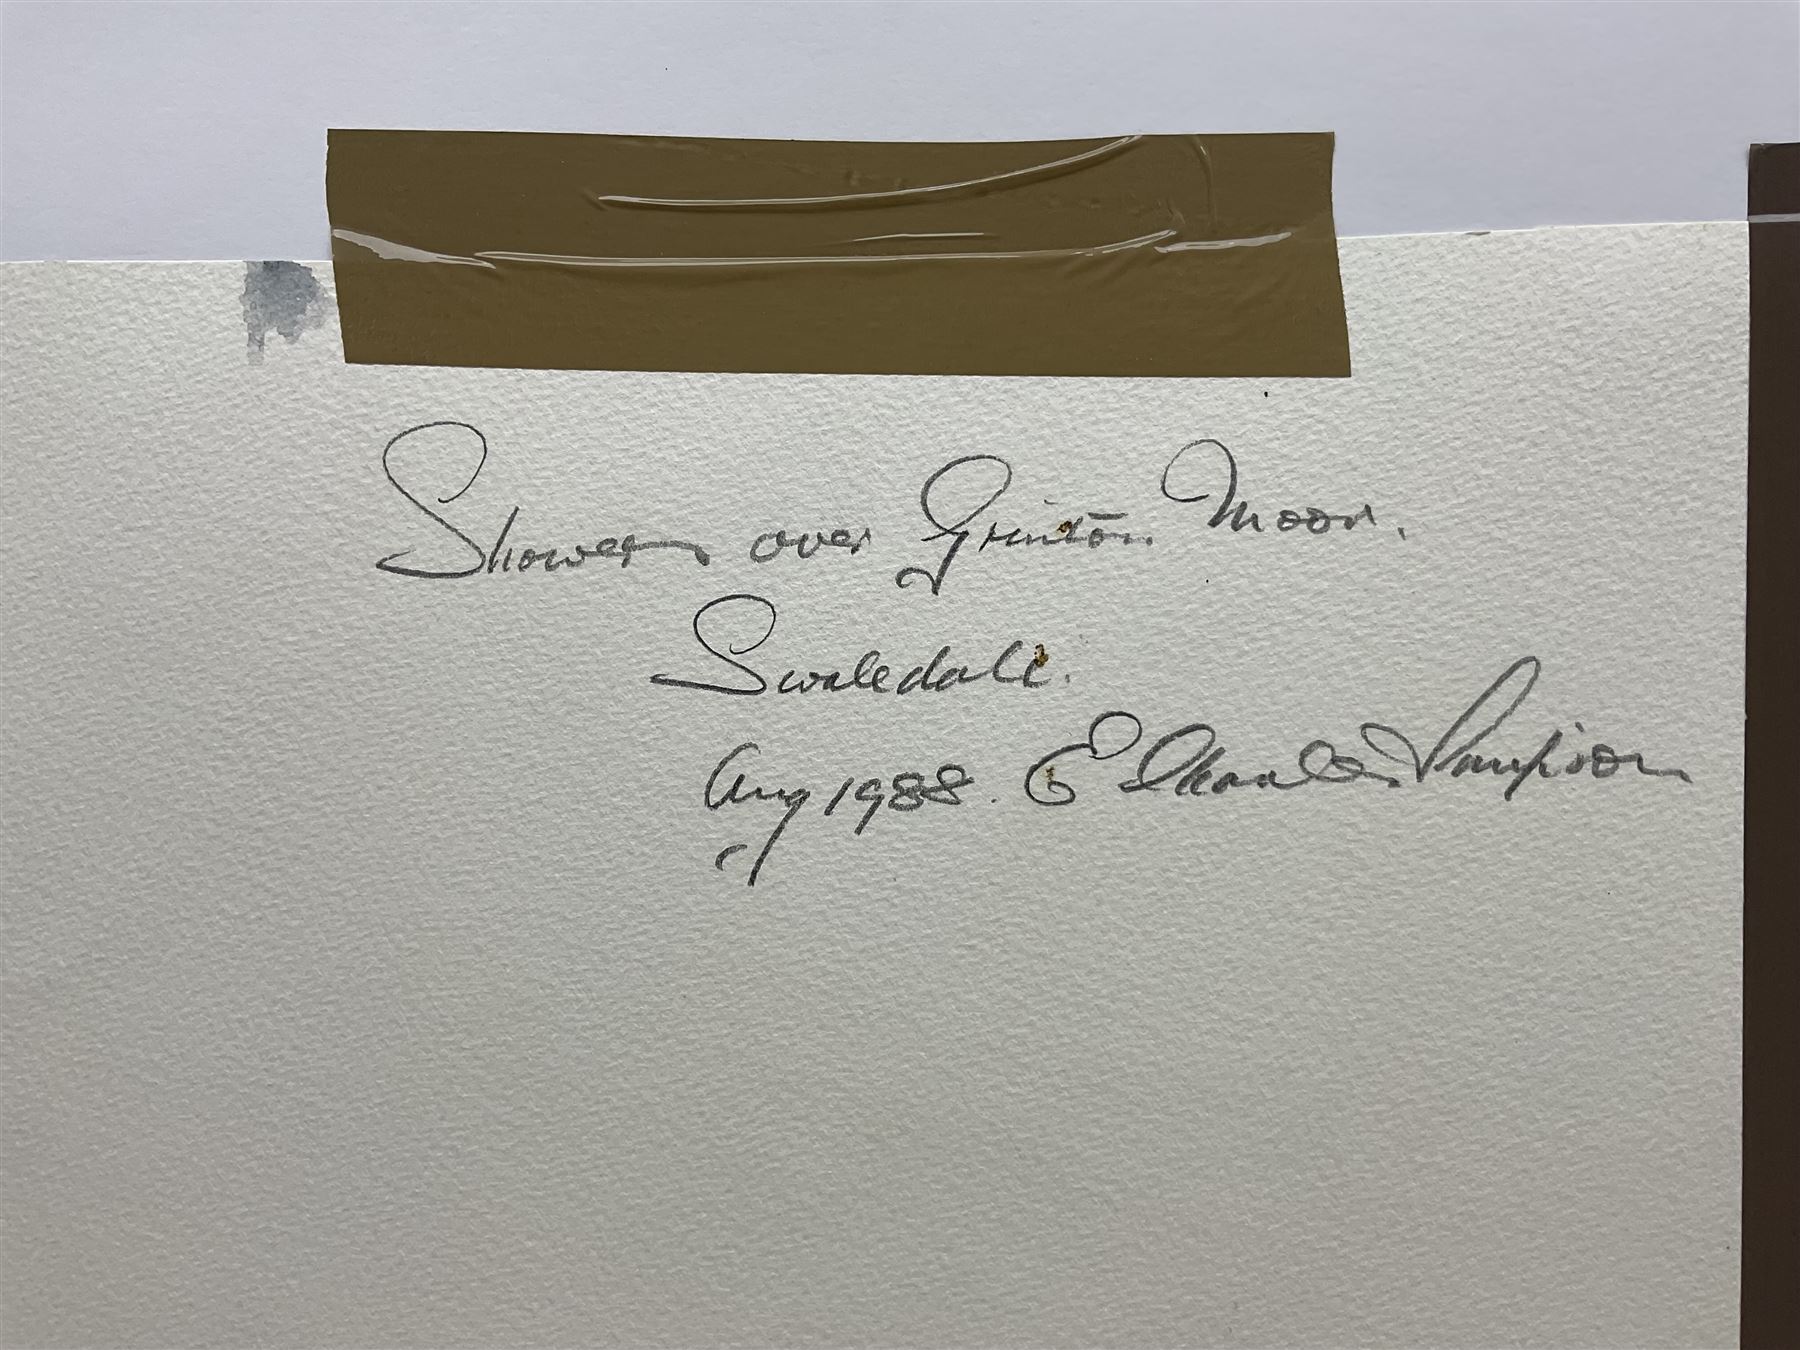 Showers over Grinton Moor.
Swaledale.
Aug 1988. E Charles Simpson